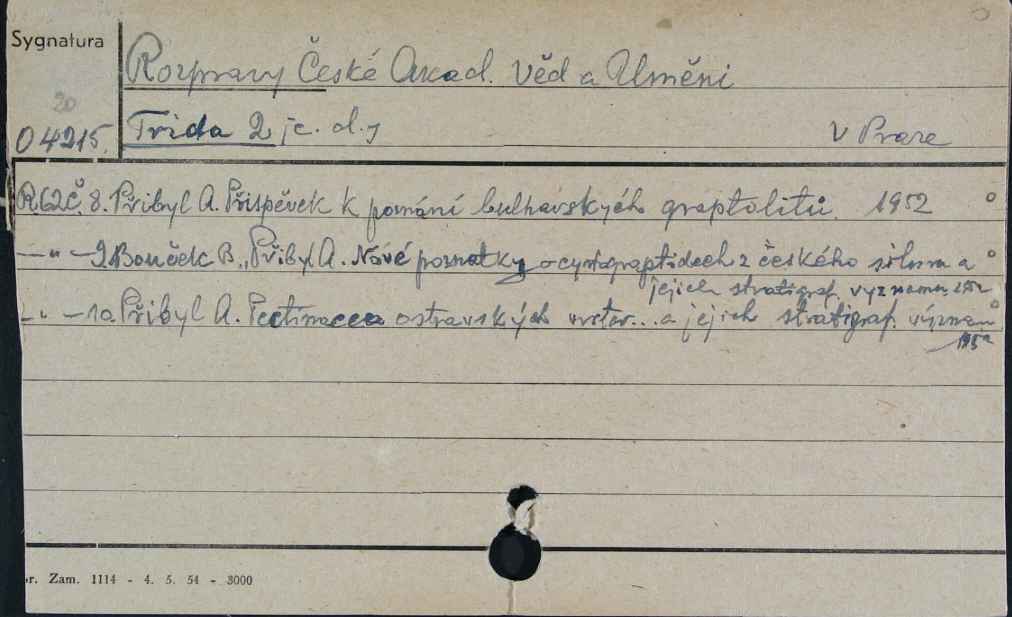 Sygnatura
Rozpravy České Akad. Věd a Umĕni
20
O 4215. Trida 2 jc. d.j v Praze
R.62 Č. 8. Přibyl A. Přispěvek k poznání bulharských graptolitů. 1952
—"— 9. Bouček B., Přibyl A. Nové poznatky o cyrtograptidech z českého siluru a
jejich stratigraf. významu 1952
—"— 10 Přibyl A. Pectinacea ostravských vrstev... a jejich stratigraf. význam
1952
r. Zam. 1114 - 4. 5. 54 - 3000